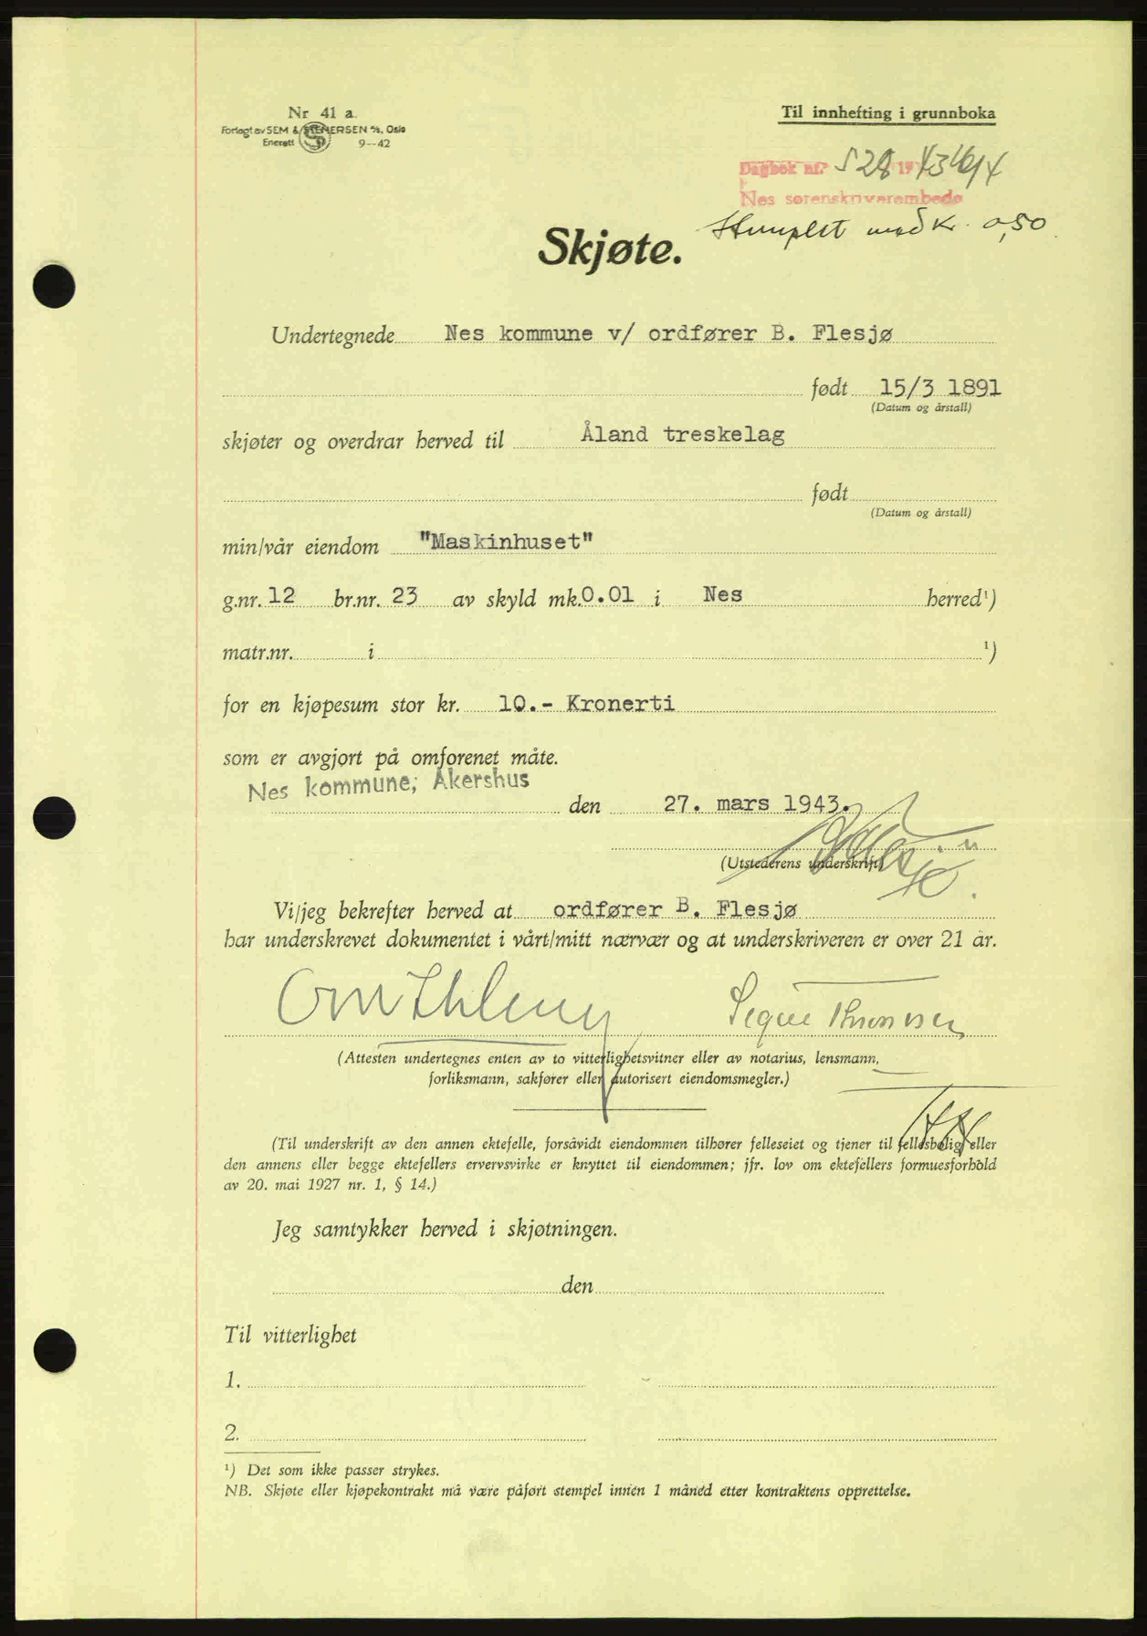 Nr 41 a.
Forlagt av SEM & STENERSEN A/s, Oslo
Enerett 9--42
Til innhefting i grunnboka
Dagbok nr. 528 1943 16/4
Nes sorenskriverembede
Stemplet med kr. 0,50.
Skjøte.
Undertegnede Nes kommune v/ ordfører B. Flesjø
født 15/3 1891
(Datum og årstall)
skjøter og overdrar herved til Åland treskelag
født
(Datum og årstall)
min/vår eiendom "Maskinhuset"
g.nr. 12 br.nr. 23 av skyld mk. 0.01 i Nes herred¹)
matr.nr. i ¹)
for en kjøpesum stor kr. 10.- Kronerti
som er avgjort på omforenet måte.
Nes kommune; Akershus den 27. mars 1943.
(Utstederens underskrift)
Vi/jeg bekrefter herved at ordfører B. Flesjø
har underskrevet dokumentet i vårt/mitt nærvær og at underskriveren er over 21 år.
(Attesten undertegnes enten av to vitterlighetsvitner eller av notarius, lensmann,
forliksmann, sakfører eller autorisert eiendomsmegler.)
(Til underskrift av den annen ektefelle, forsåvidt eiendommen tilhører felleseiet og tjener til fellesbolig eller
den annens eller begge ektefellers ervervsvirke er knyttet til eiendommen; jfr. lov om ektefellers formuesforhold
av 20. mai 1927 nr. 1, § 14.)
Jeg samtykker herved i skjøtningen.
den
Til vitterlighet
1.
2.
¹) Det som ikke passer strykes.
NB. Skjøte eller kjøpekontrakt må være påført stempel innen 1 måned etter kontraktens opprettelse.